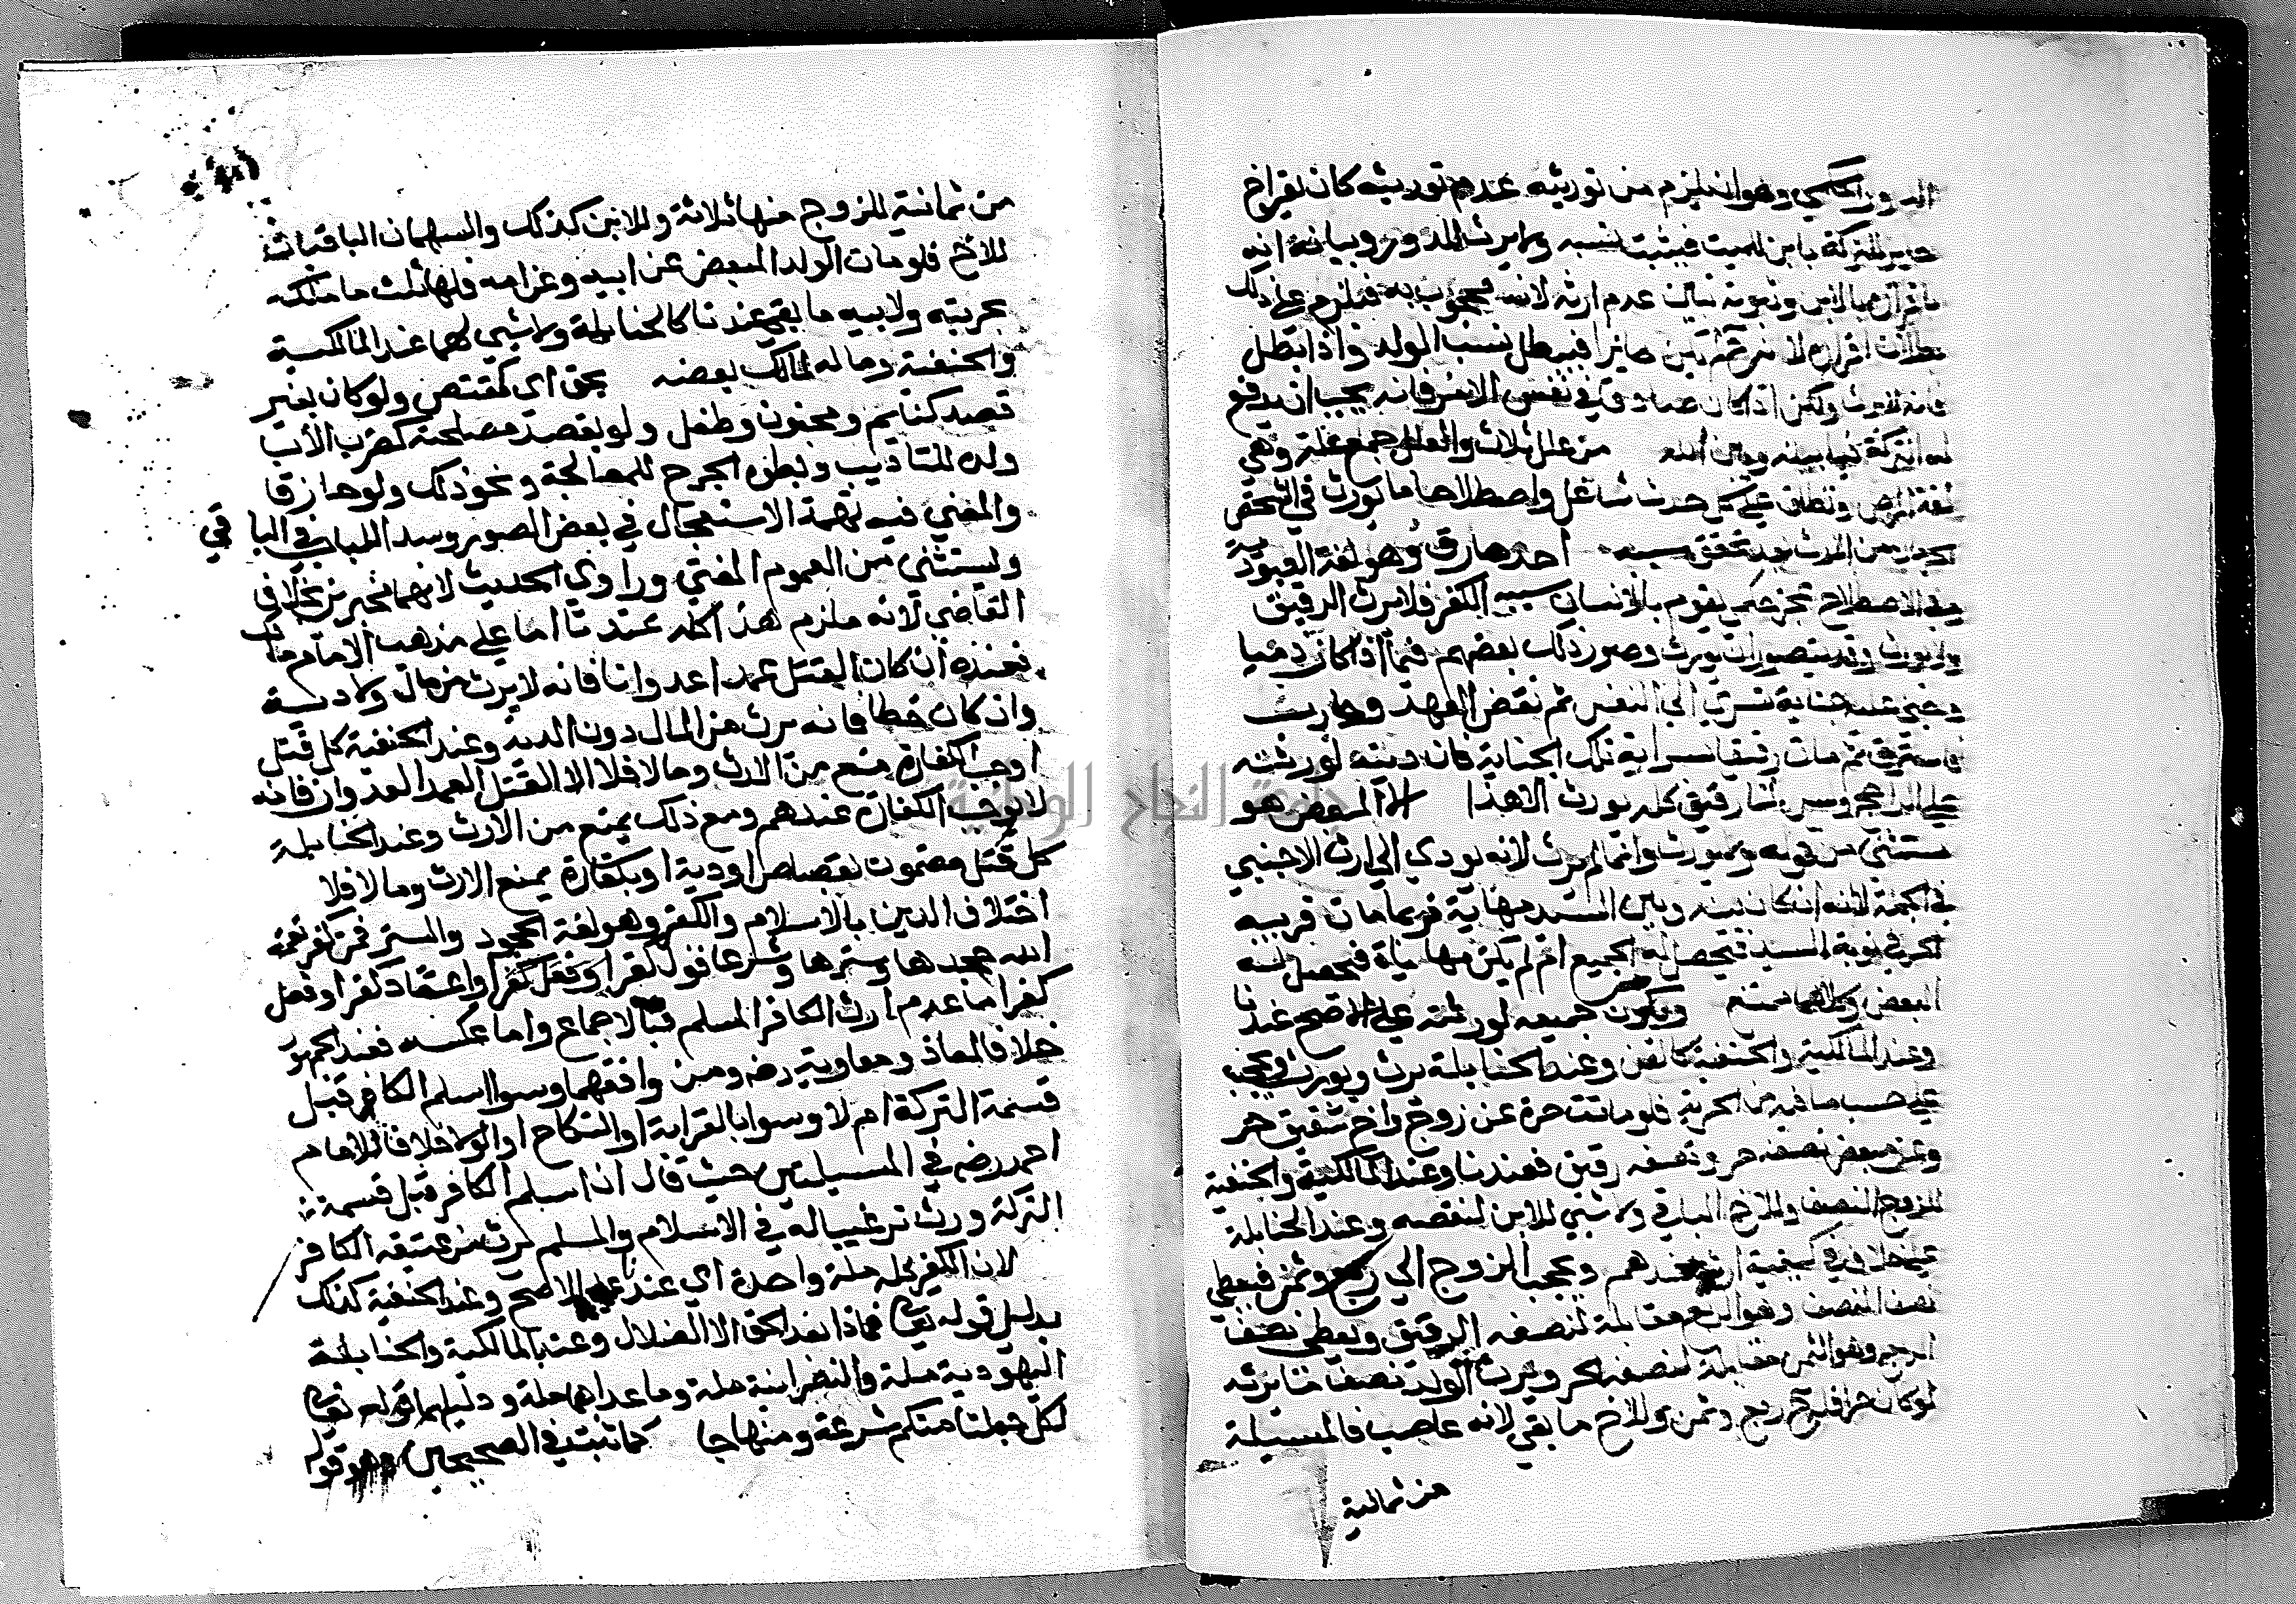 الدور الحكمي وهو ان يلزم من توريثه عدم توريثه كان يقر اخ
حايز للتركة بابن للميت فيثبت نسبه ولا يرث للدور وبيانه انه
عدم ارثه لانه محجوب به فيلزم على ذلك
بطلان اقراره لانه حايزا فيبطل نسب الولد واذا بطل
فانه لا يرث ولكن اذا كان صادقا في نفس الامر فانه يجب ان يدفع
له التركة فيما بينه وبين الله من علل ثلاث والعلل جمع علة وهي
لغة المرض وتطلق على كل حدث شاغل واصطلاحا ما تورث في الشخص
من الارث بعد تحقق سببه احدها رق وهو لغة العبودية
وفي الاصطلاح عجز حكمي يقوم بالانسان سببه الكفر فلا يرث الرقيق
ولا يورث وقد يتصور ان يورث وصور ذلك بعضهم فيما اذا كان ذميا
وجني عليه جناية تسري الى النفس ثم نقض العهد وحارب
فاسترق ثم مات رقيقا بسراية تلك الجناية فان ديته لورثته
على الراجح وليس لنا رقيق كله يورث الا هذا الا المبعض هو
مستثنى من قوله ولا يورث وانما لم يرث لانه يودي الى ارث الاجنبي
في الجملة لانه ان كان بينه وبين السيد مهاياة فربما مات قريبه
الحر في نوبة السيد فتحصل له الجميع ام لم يكن مهاياة فيحصل له
البعض وكلاهما ممتنع ويكون جميعه لورثته على الاصح عندنا
وعند المالكية والحنفية كالقن وعند الحنابلة يرث ويورث ويحجب
على حسب ما فيه من الحرية فلو ماتت حرة عن زوج واخ شقيق حر
وعن مبعض نصفه حر ونصفه رقيق فعندنا وعند المالكية والحنفية
للزوج النصف وللاخ الباقي ولا شي للابن لنقصه وعند الحنابلة
على خلاف في كيفية ارثه عندهم ويحجب الزوج الى ربع وثمن فيعطى
نصف النصف وهو الربع مقابلة لنصفه الرقيق ويعطى نصف
الربع وهو الثمن مقابلة لنصفه الحر ويرث الولد نصف ما يرثه
لو كان حرا ربع وثمن وللاخ ما بقي لانه عاصب فالمسيلة
من ثمانية
من ثمانية للزوج منها ثلاثة وللابن كذلك والسهمان الباقيان
للاخ فلو مات الولد المبعض عن ابيه وعن امه فلها ثلث ما ملكه
بحريته ولابيه ما بقي عندنا كالحنابلة ولا شي لهما عند المالكية
والحنفية وماله لمالك بعضه بحق اى كمقتص ولو كان بغير
قصد كنايم ومجنون وطفل ولو بقصد مصلحة كضرب الاب
ولده للتاديب وبطه الجرح للمعالجة ونحو ذلك ولو حازقا
والمعنى فيه تهمة الاستعجال في بعض الصور وسد الباب في الباقي
ويستثنى من العموم المفتي وراوي الحديث لانهما مخبرين بخلاف
القاضي لانه ملزم هذا كله عندنا اما على مذهب الامام مالك
فعنده ان كان القتل عمدا عدوانا فانه لا يرث من مال ولا دية
وان كان خطا فانه يرث من المال دون الدية وعند الحنفية كل قتل
اوجب الكفارة منع من الارث وما لا فلا الا القتل العمد العدوان فانه
لا يوجب الكفارة عندهم ومع ذلك يمنع من الارث وعند الحنابلة
كل قتل مضمون بقصاص او دية او بكفارة يمنع الارث وما لا فلا
اختلاف الدين بالاسلام والكفر وهو لغة الجحود والستر فمن كفر نعمة
الله جحدها وسترها وشرعا قول كفرا وفعل كفرا واعتقاد كفرا وفعل
كفرا اما عدم ارث الكافر المسلم فبالاجماع واما عكسه فعند الجمهور
خلافا لمعاذ ومعاوية رضه ومن وافقهما وسوا اسلم الكافر قبل
قسمة التركة ام لا وسوا بالقرابة او النكاح او الولا خلافا للامام
احمد رضه في المسيلتين حيث قال اذا اسلم الكافر قبل قسمة
التركة ورث ترغيبا له في الاسلام والمسلم يرث من عتيقه الكافر
لان الكفر كله ملة واحدة اي عندنا على الاصح وعند الحنفية كذلك
بدليل قوله تعالى فماذا بعد الحق الا الضلال وعند المالكية والحنابلة
اليهودية ملة والنصرانية ملة وما عداهما ملة ودليلهم قوله تعالى
لكل جعلنا منكم شرعة ومنهاجا كما ثبت في الصحيحين وهو قوله